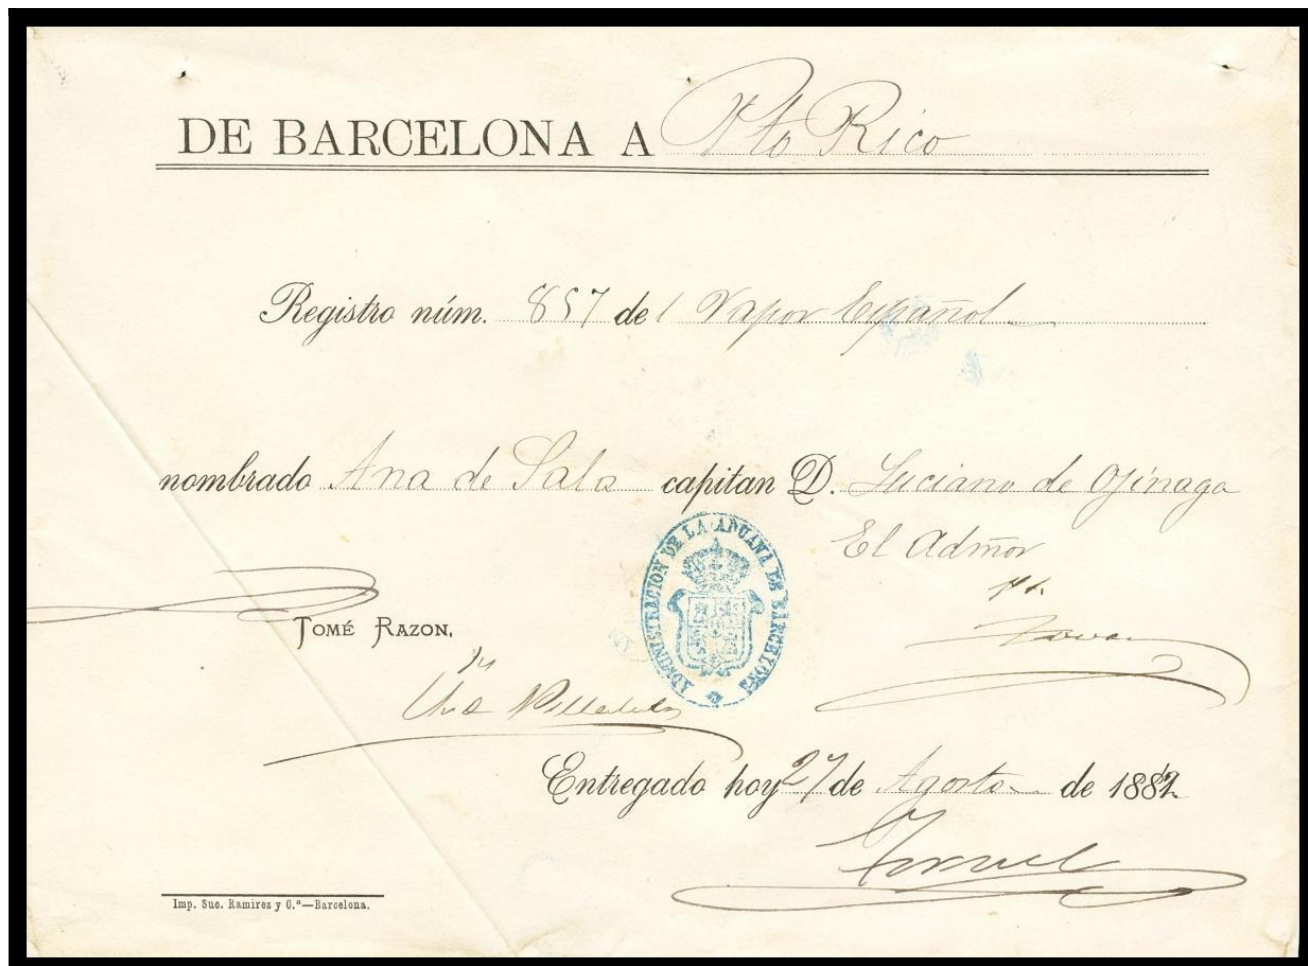 DE BARCELONA A Pto Rico
Registro núm. 857 del Vapor Español
nombrado Ana de Sala capitan D. Luciano de Ojínaga
El Admor
ADMINISTRACION DE LA ADUANA DE BARCELONA
TOMÉ RAZON,
Entregado hoy 27 de Agosto de 1882.
Imp. Suc. Ramirez y C.ª—Barcelona.